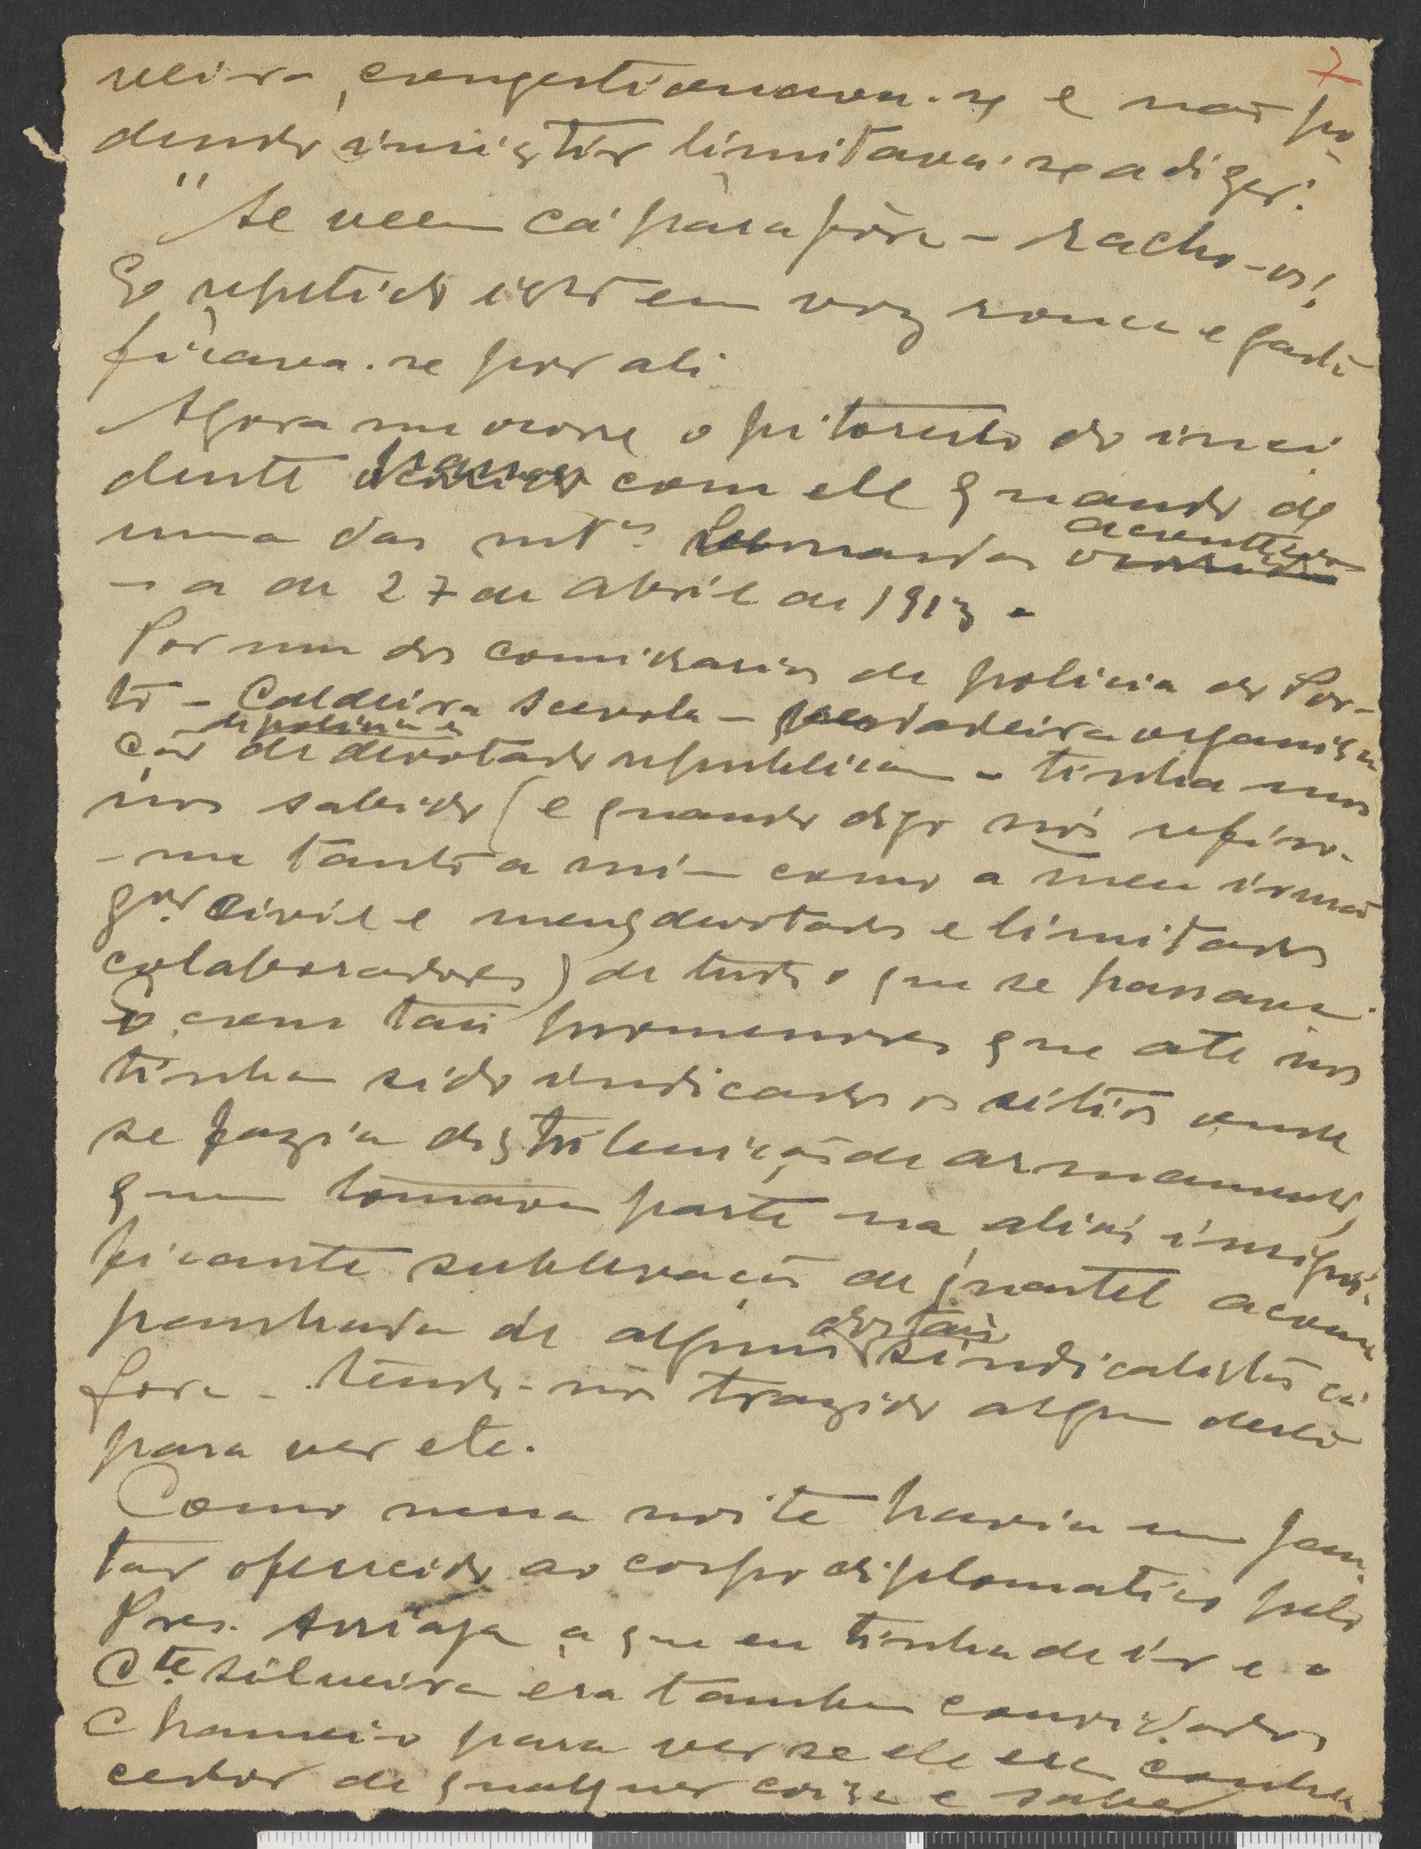 7
veira, congestionava-se e não po-
dendo insistir limitava-se a dizer:
"Se veem cá para fóra - racho-os!
E repetido isto em voz rouca e gasta
ficava-se por ali
Agora me ocorre o pitoresco do inci
dente passado com ele quando de
uma das mtas. Bernardas acontecida
- a de 27 de Abril de 1913 -
Por um dos comissarios de policia do Por-
to - Caldeira Scevola - verdadeira organisa
ção de policia e de devotado republicano - tinha mos
nos sabido (e quando digo nós refiro-
-me tanto a mim como a meu irmão
gor. Civil e meus devotados e limitados
colaboradores) de tudo o que se passava.
E com tais pormenores que até nos
tinham sido indicados os sitios onde
se fazia distribuição de armamento,
quem tomava parte na aliás insigni-
ficante sublevação de quartel acom
panhada de alguns dos tais sindicalistas cá
fora - tendo-nos trazido algum
para ver etc.
Como nessa noite havia um jan-
tar oferecido ao corpo diplomatico pelo
Pres. Arriaga a que eu tinha de ir e o
Cte. Silveira era tambem convidado,
chamei-o para ver se ele era conhe
cedor de qualquer coisa e saber